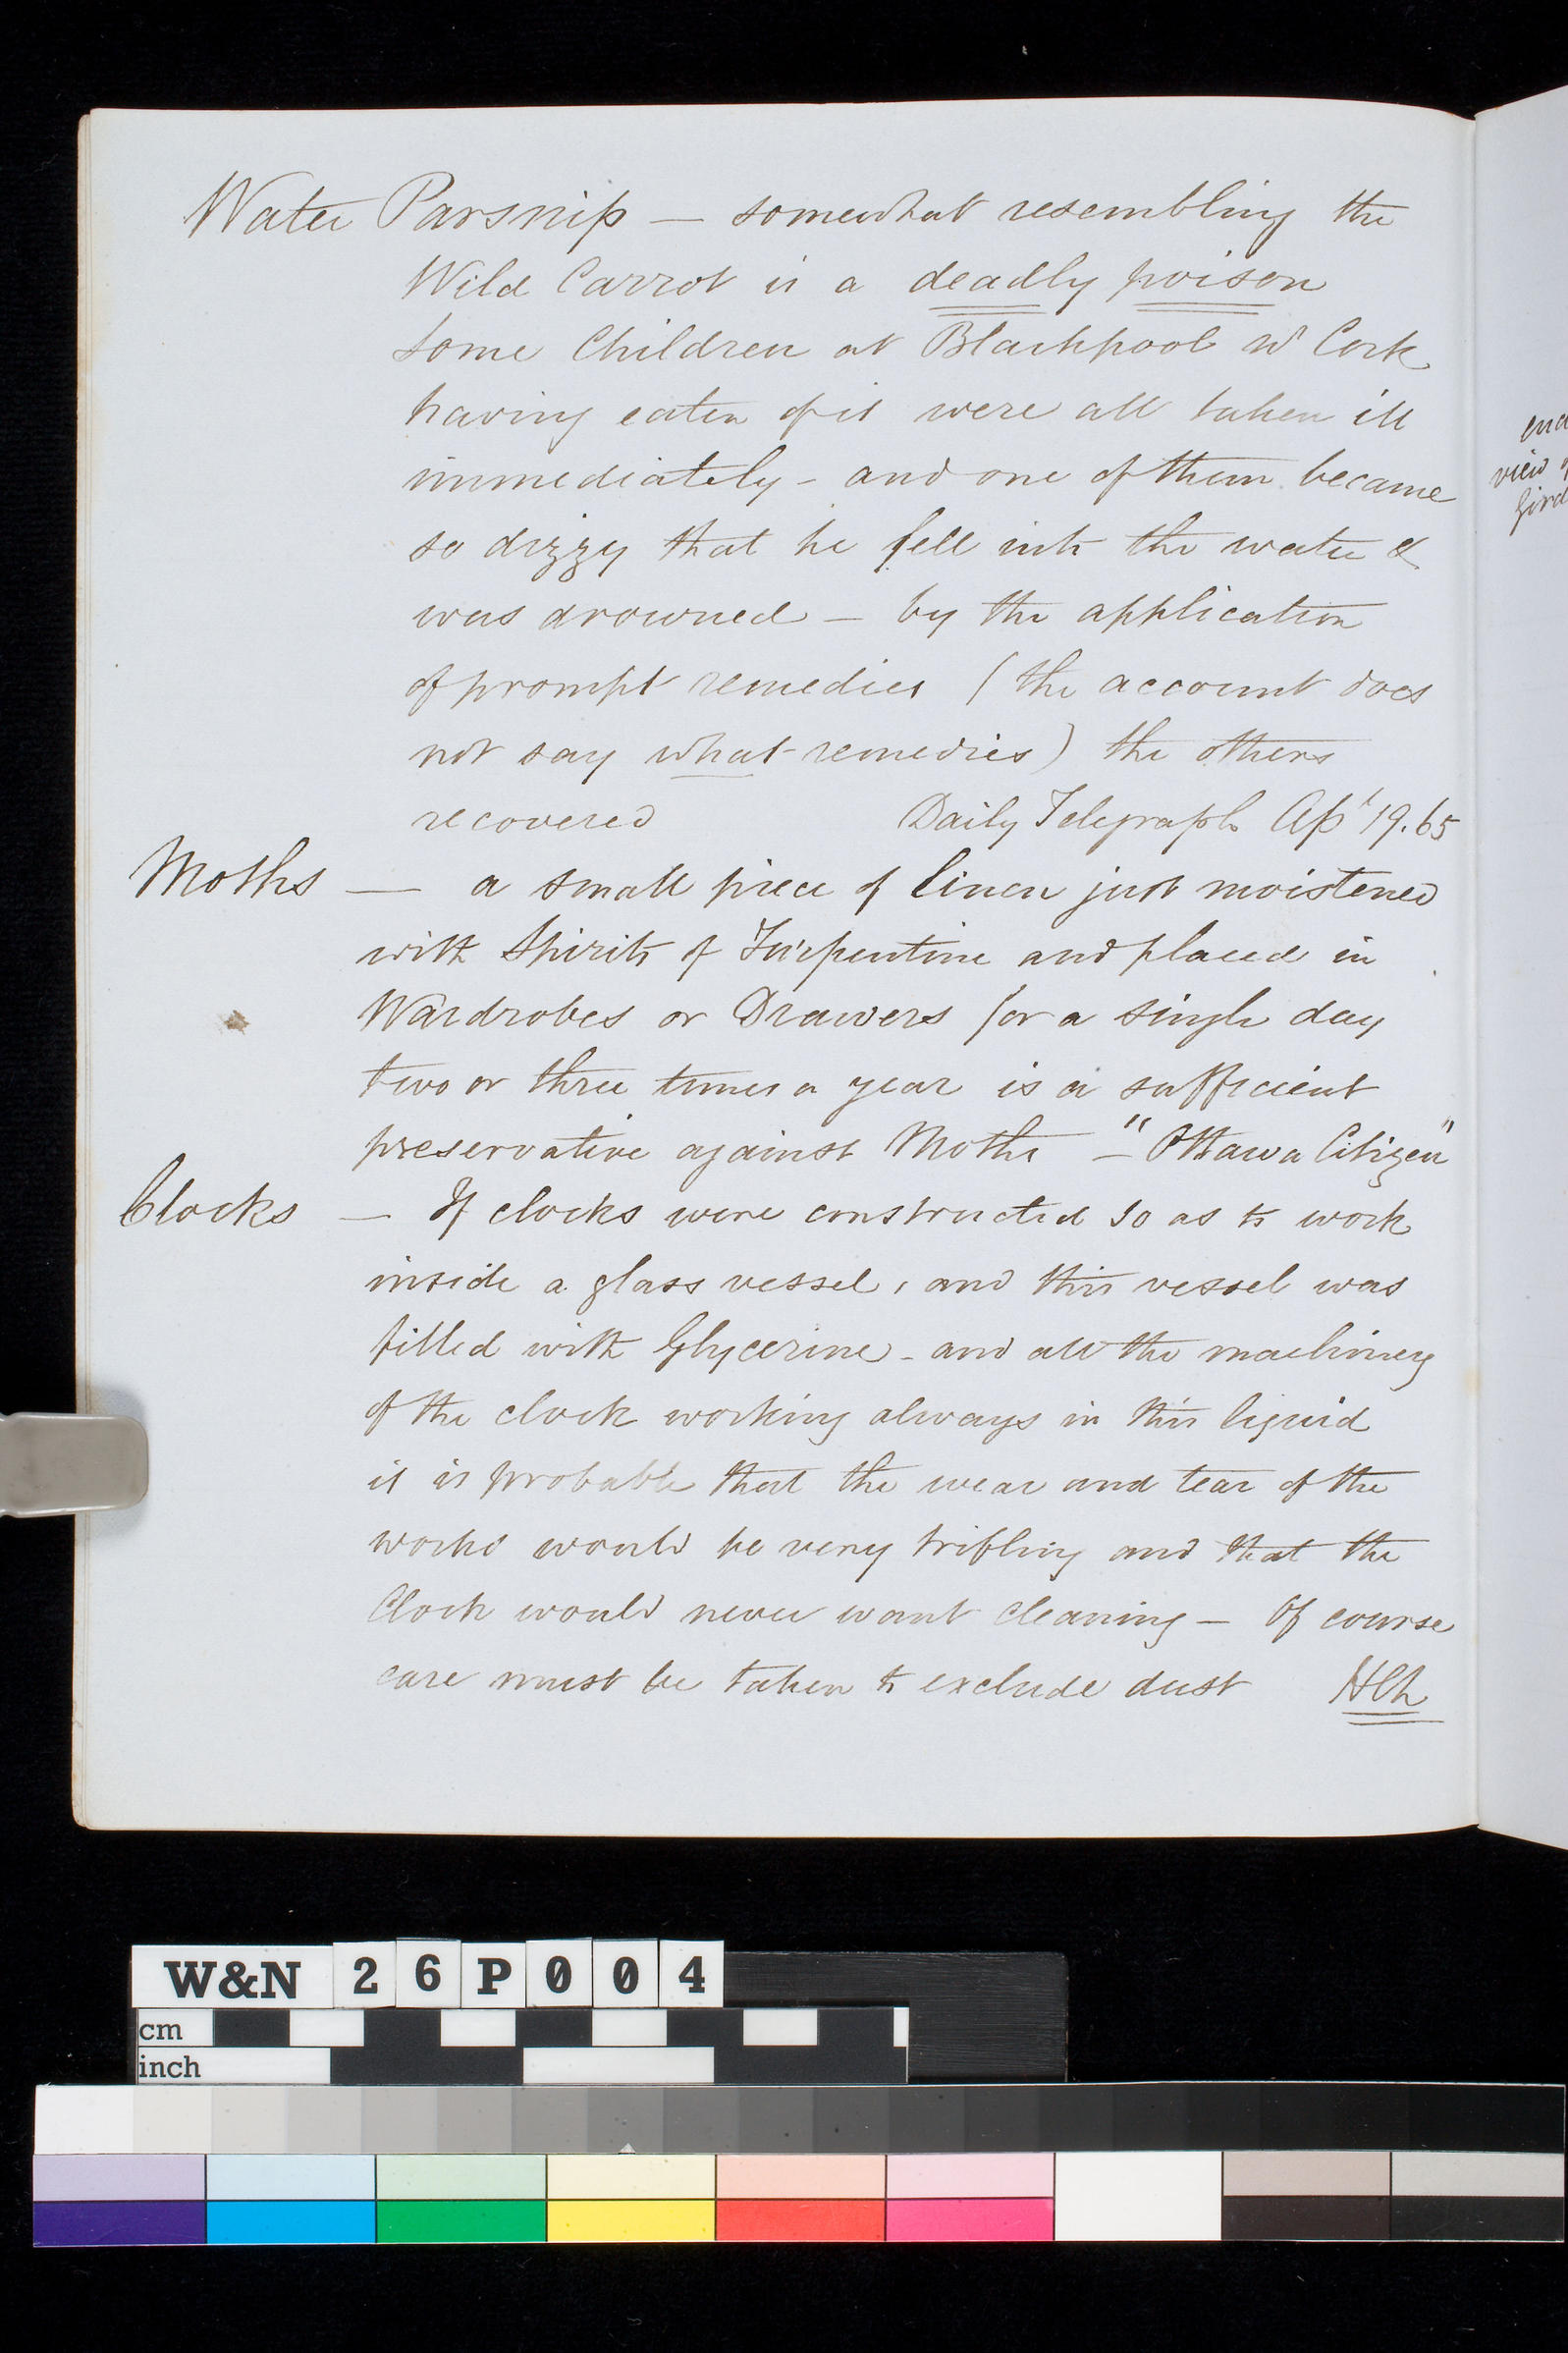 Water Parsnip — somewhat resembling the
Wild Carrot is a deadly poison
Some Children at Blackpool nr Cork
having eaten of it were all taken ill
immediately - and one of them became
so dizzy that he fell into the water &
was drowned — by the application
of prompt remedies (the account does
not say what remedies) the others
recovered Daily Telegraph Apl 19. 65
Moths — a small piece of linen just moistened
with Spirits of Turpentine and placed in
Wardrobes or Drawers for a single day
two or three times a year is a sufficient
preservative against Moths — "Ottawa Citizen"
Clocks — If clocks were constructed so as to work
inside a glass vessel, and this vessel was
filled with Glycerine - and all the machinery
of the clock working always in this liquid
it is probable that the wear and tear of the
works would be very trifling and that the
Clock would never want cleaning — Of course
care must be taken to exclude dust HCN
view
W&N 26P004
cm
inch